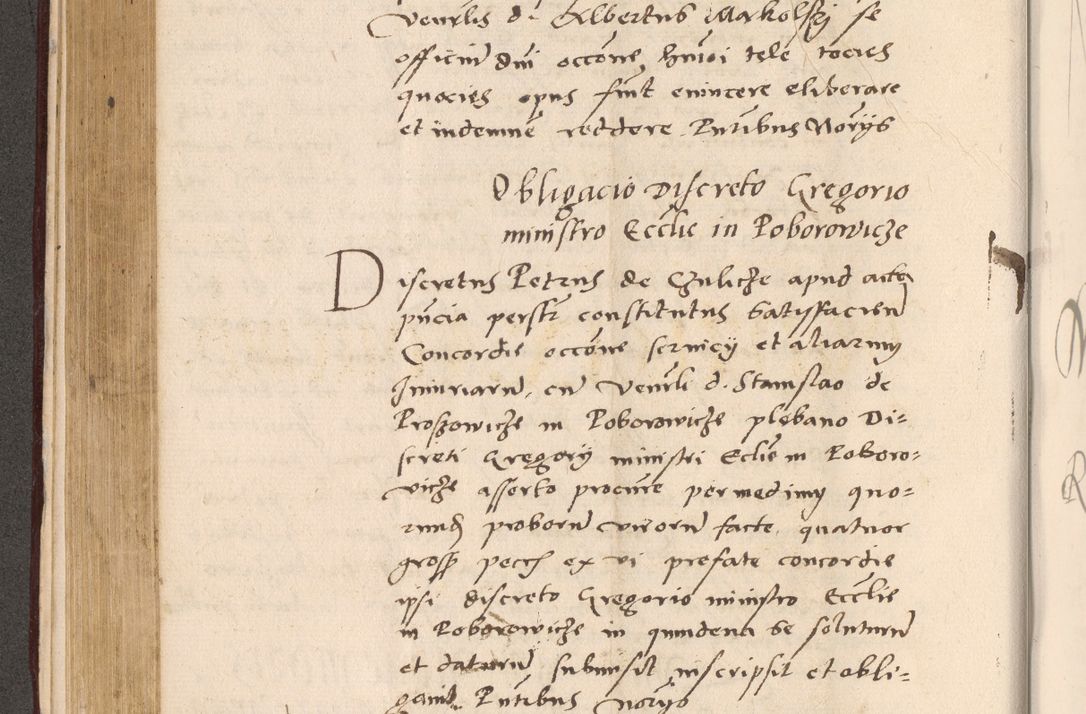 Venerlis d. Albertus Makolszi se
officiu dni occone hmoi tele tocies
quocies opus fuit evincere eliberare
et indemne reddere Pntibus Norys
Obligacio Discreto Gregorio
ministro Ecclie in Poborowicze
Discretus Petrus de Czulicze apud acta
pncia personlr constitutus Satisfaciend
Concordie occone servicy et aliarum
Iniuriaru, cu Venerli d. Stanislao de
Proszowicze in Poborowicze plebano Di=
screti Gregory ministri Eclie in Poboro=
vicze asserto procure per medium quo=
rund proboru viroru facte, quatuor
gross pecc ex vi prefate concordie
ipsi discreto Gregorio ministro Ecclie
in Poborowicze in quindena se soluturu
et daturu submisit inscripsit et obli=
gavit Pntibus norys